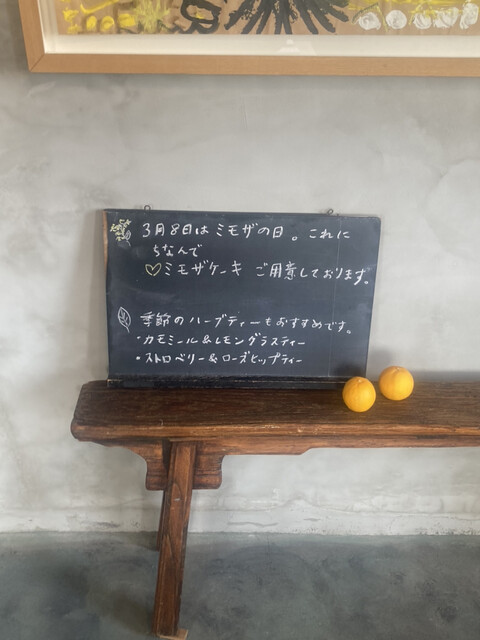 3月8日はミモザの日。これに
ちなんで
♡ミモザケーキ ご用意しております。
季節のハーブティーもおすすめです。
・カモミール&レモングラスティー
・ストロベリー&ローズヒップティー